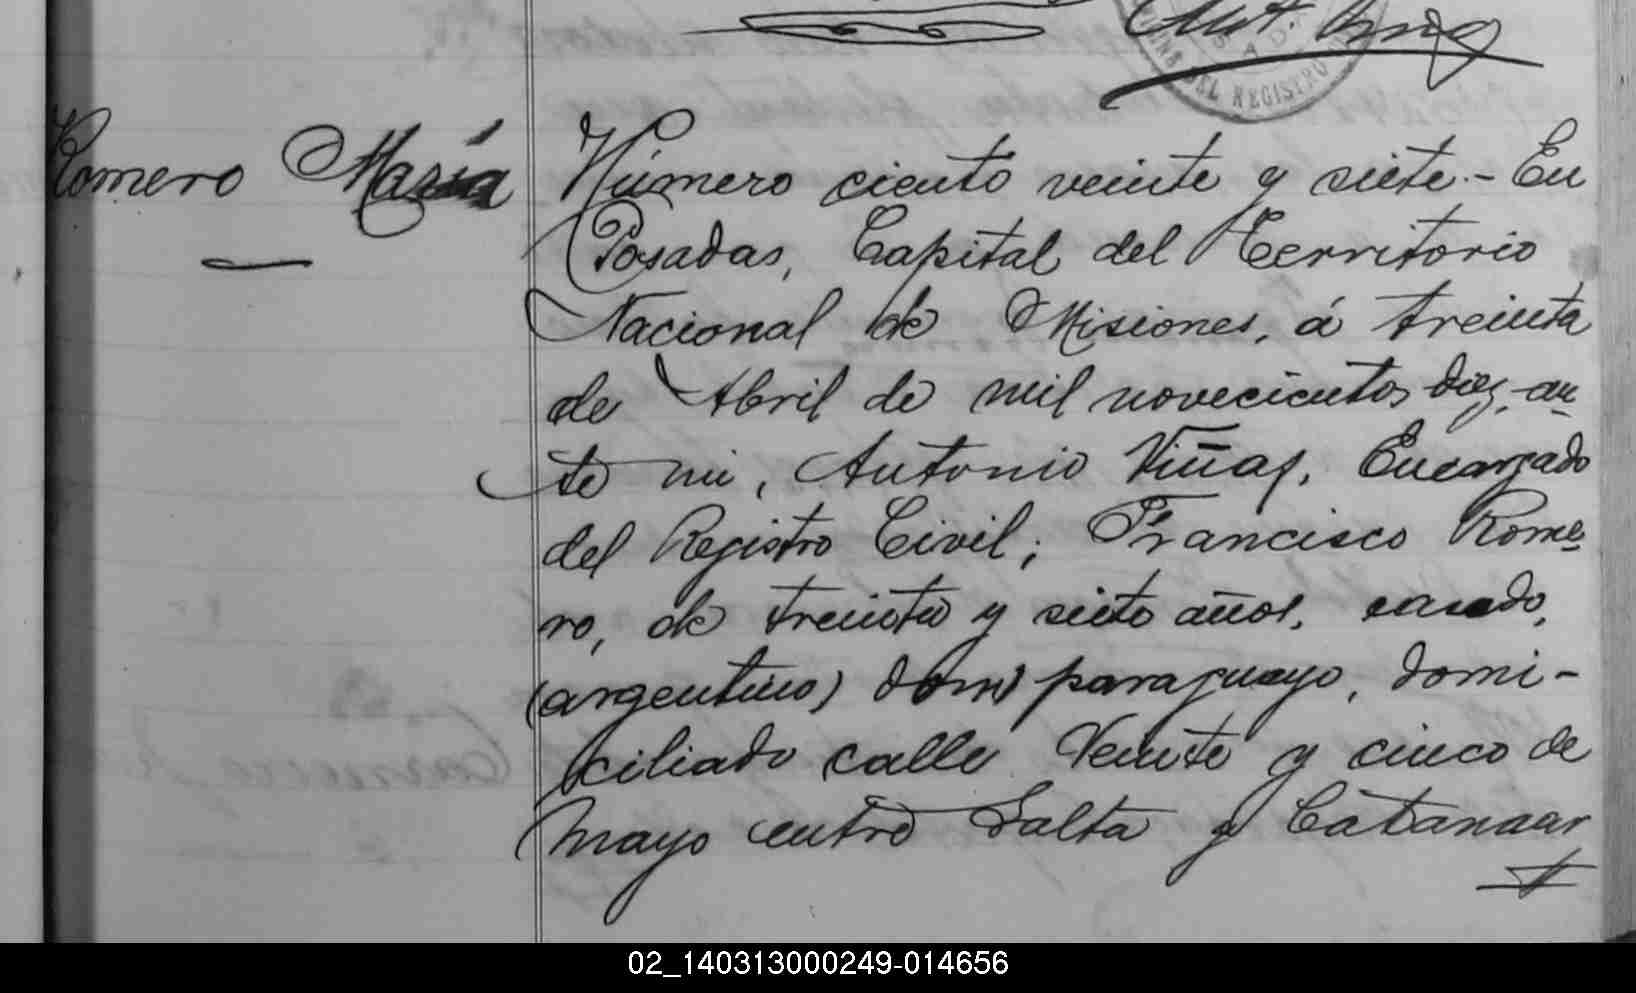 Romero María
Número ciento veinte y siete.- En
Posadas, Capital del Territorio
Nacional de Misiones, á treinta
de Abril de mil novecientos diez, an-
te mi, Antonio Viñas, Encargado
del Registro Civil; Francisco Rome-
ro, de treinta y siete años, casado,
(argentino) paraguayo, domi-
ciliado calle Veinte y cinco de
Mayo entre Salta y
DEL REGISTRO
02_140313000249-014656